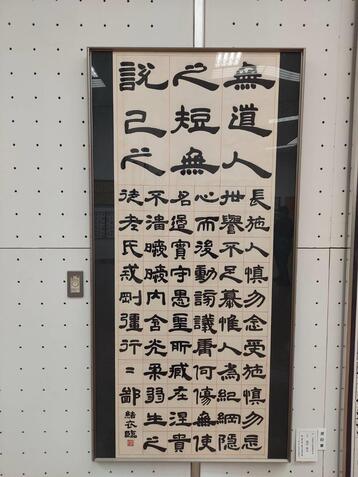 無道人
之短無
説己之
長施人慎勿念受施慎勿忘
世譽不足慕惟人為紀綱隱
心而後動謗議庸何傷無使
名過實守愚聖所臧在涅貴
不淄曖曖内含光柔弱生之
徒老氏戒剛彊行〻鄙
結衣臨